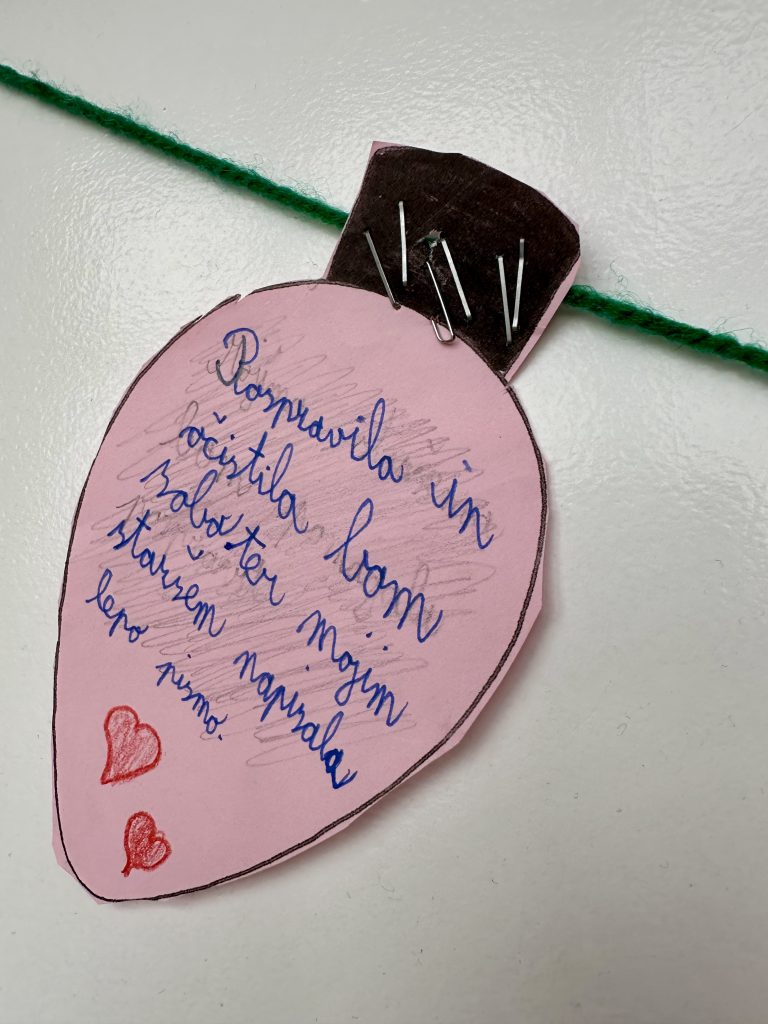 Pospravila in
očistila bom
sobo ter mojim
staršem napisala
lepo pismo.